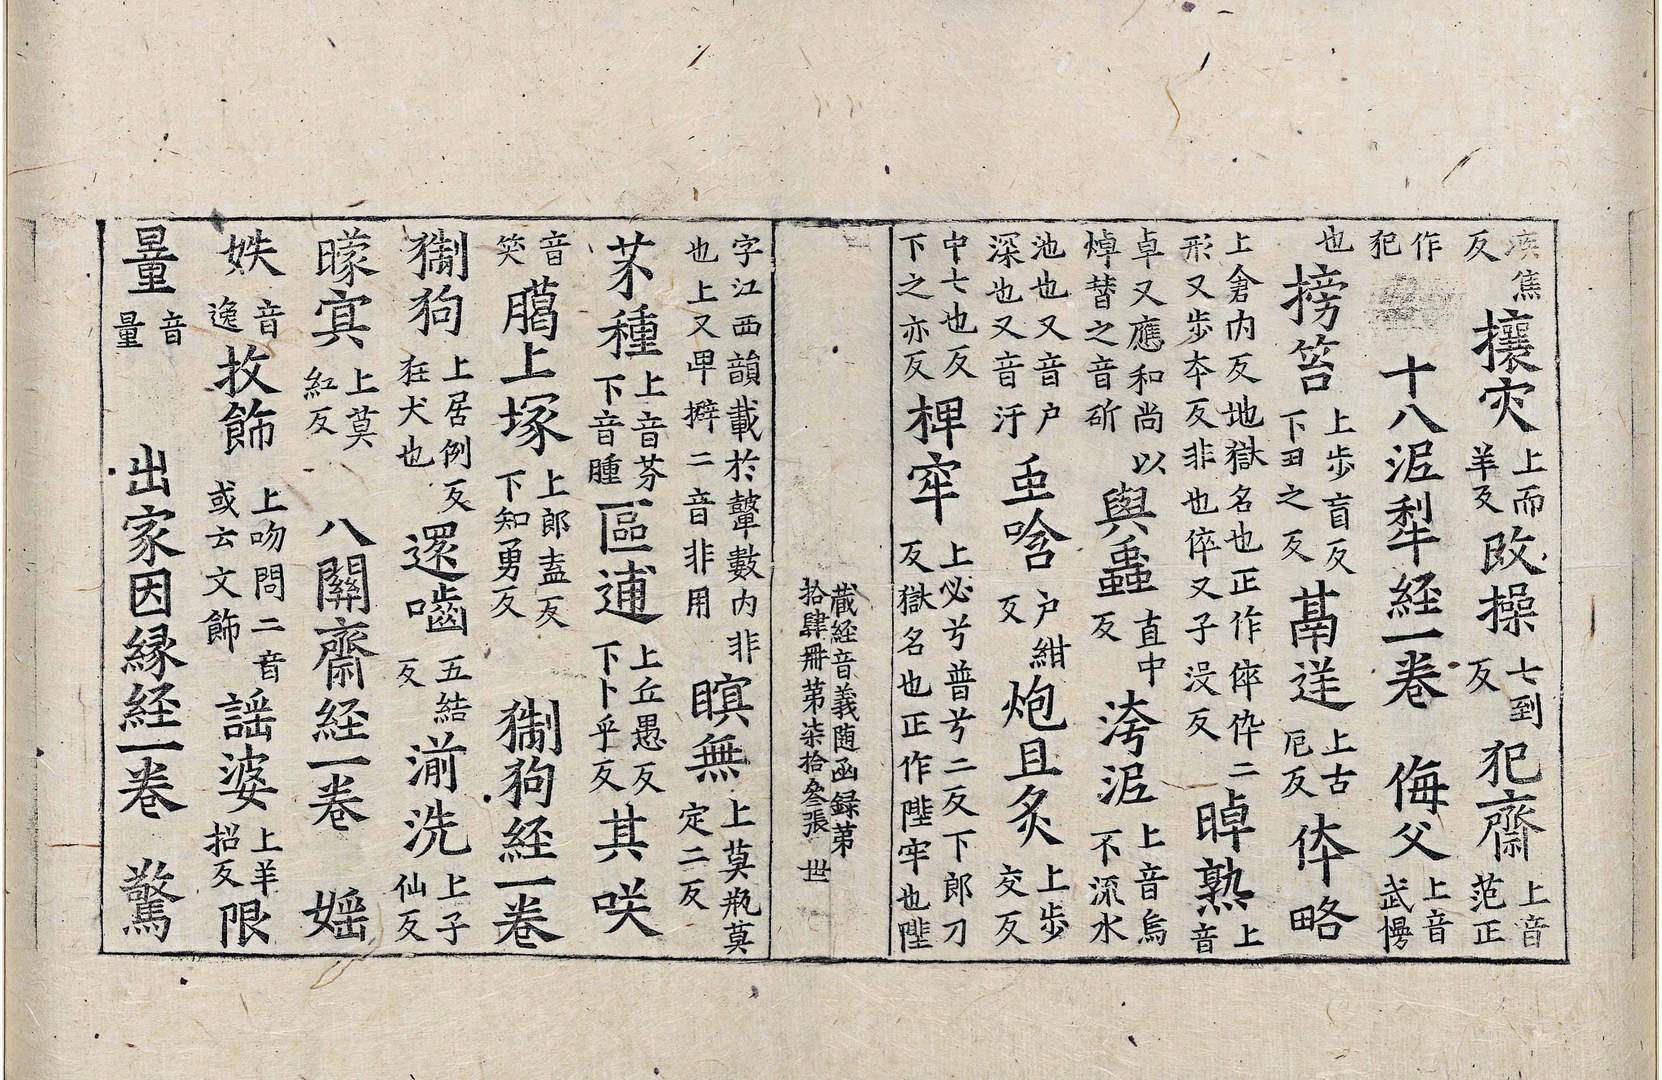 疾焦反攘灾上而羊反改操七到反犯齋上音范正
作犯十八泥犁経一卷侮父上音武慢
也搒笞上步盲反下丑之反鬲逆上古厄反体略
上倉内反地獄名也正作倅伜二形又步本反非也倅又子没反晫熟上音
卓又應和尚以焯替之音斫與蟲直中反洿泥上音烏不流水
池也又音户深也又音汙䖝唅户紺反炮且炙上步交反
中七也反下之亦反梐窂上必兮普兮二反下郎刀反獄名也正作陛牢也陛
蔵経音義随函録第拾肆冊第柒拾叄張 世
字江西韻載於鼙數内非也上又毘擗二音非用瞑無上莫瓶莫定二反
茅種上音芬下音腫區逋上丘愚反下卜乎反其咲
音笶臈上塚上郎盍反下知勇反猘狗経一卷
猘狗上居例反狂犬也還嚙五結反湔洗上子仙反
曚㝠上莫紅反八關齋経一卷婬
妷音逸抆飾上吻問二音或云文飾謡婆上羊招反限
量音量出家因縁経一卷驚